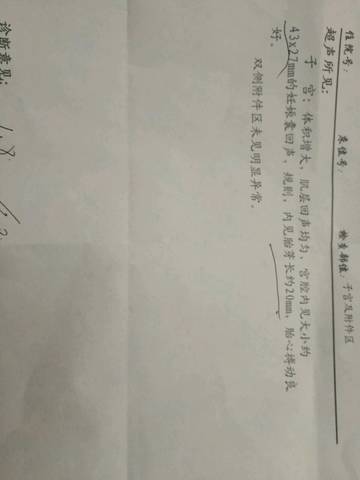 住院号：
床位号：
检查部位：子宫及附件区
超声所见：
子宫：体积增大，肌层回声均匀，宫腔内见大小约
43x27mm的妊娠囊回声，规则，内见胎芽长约20mm，胎心搏动良
好。
双侧附件区未见明显异常。
诊断意见：